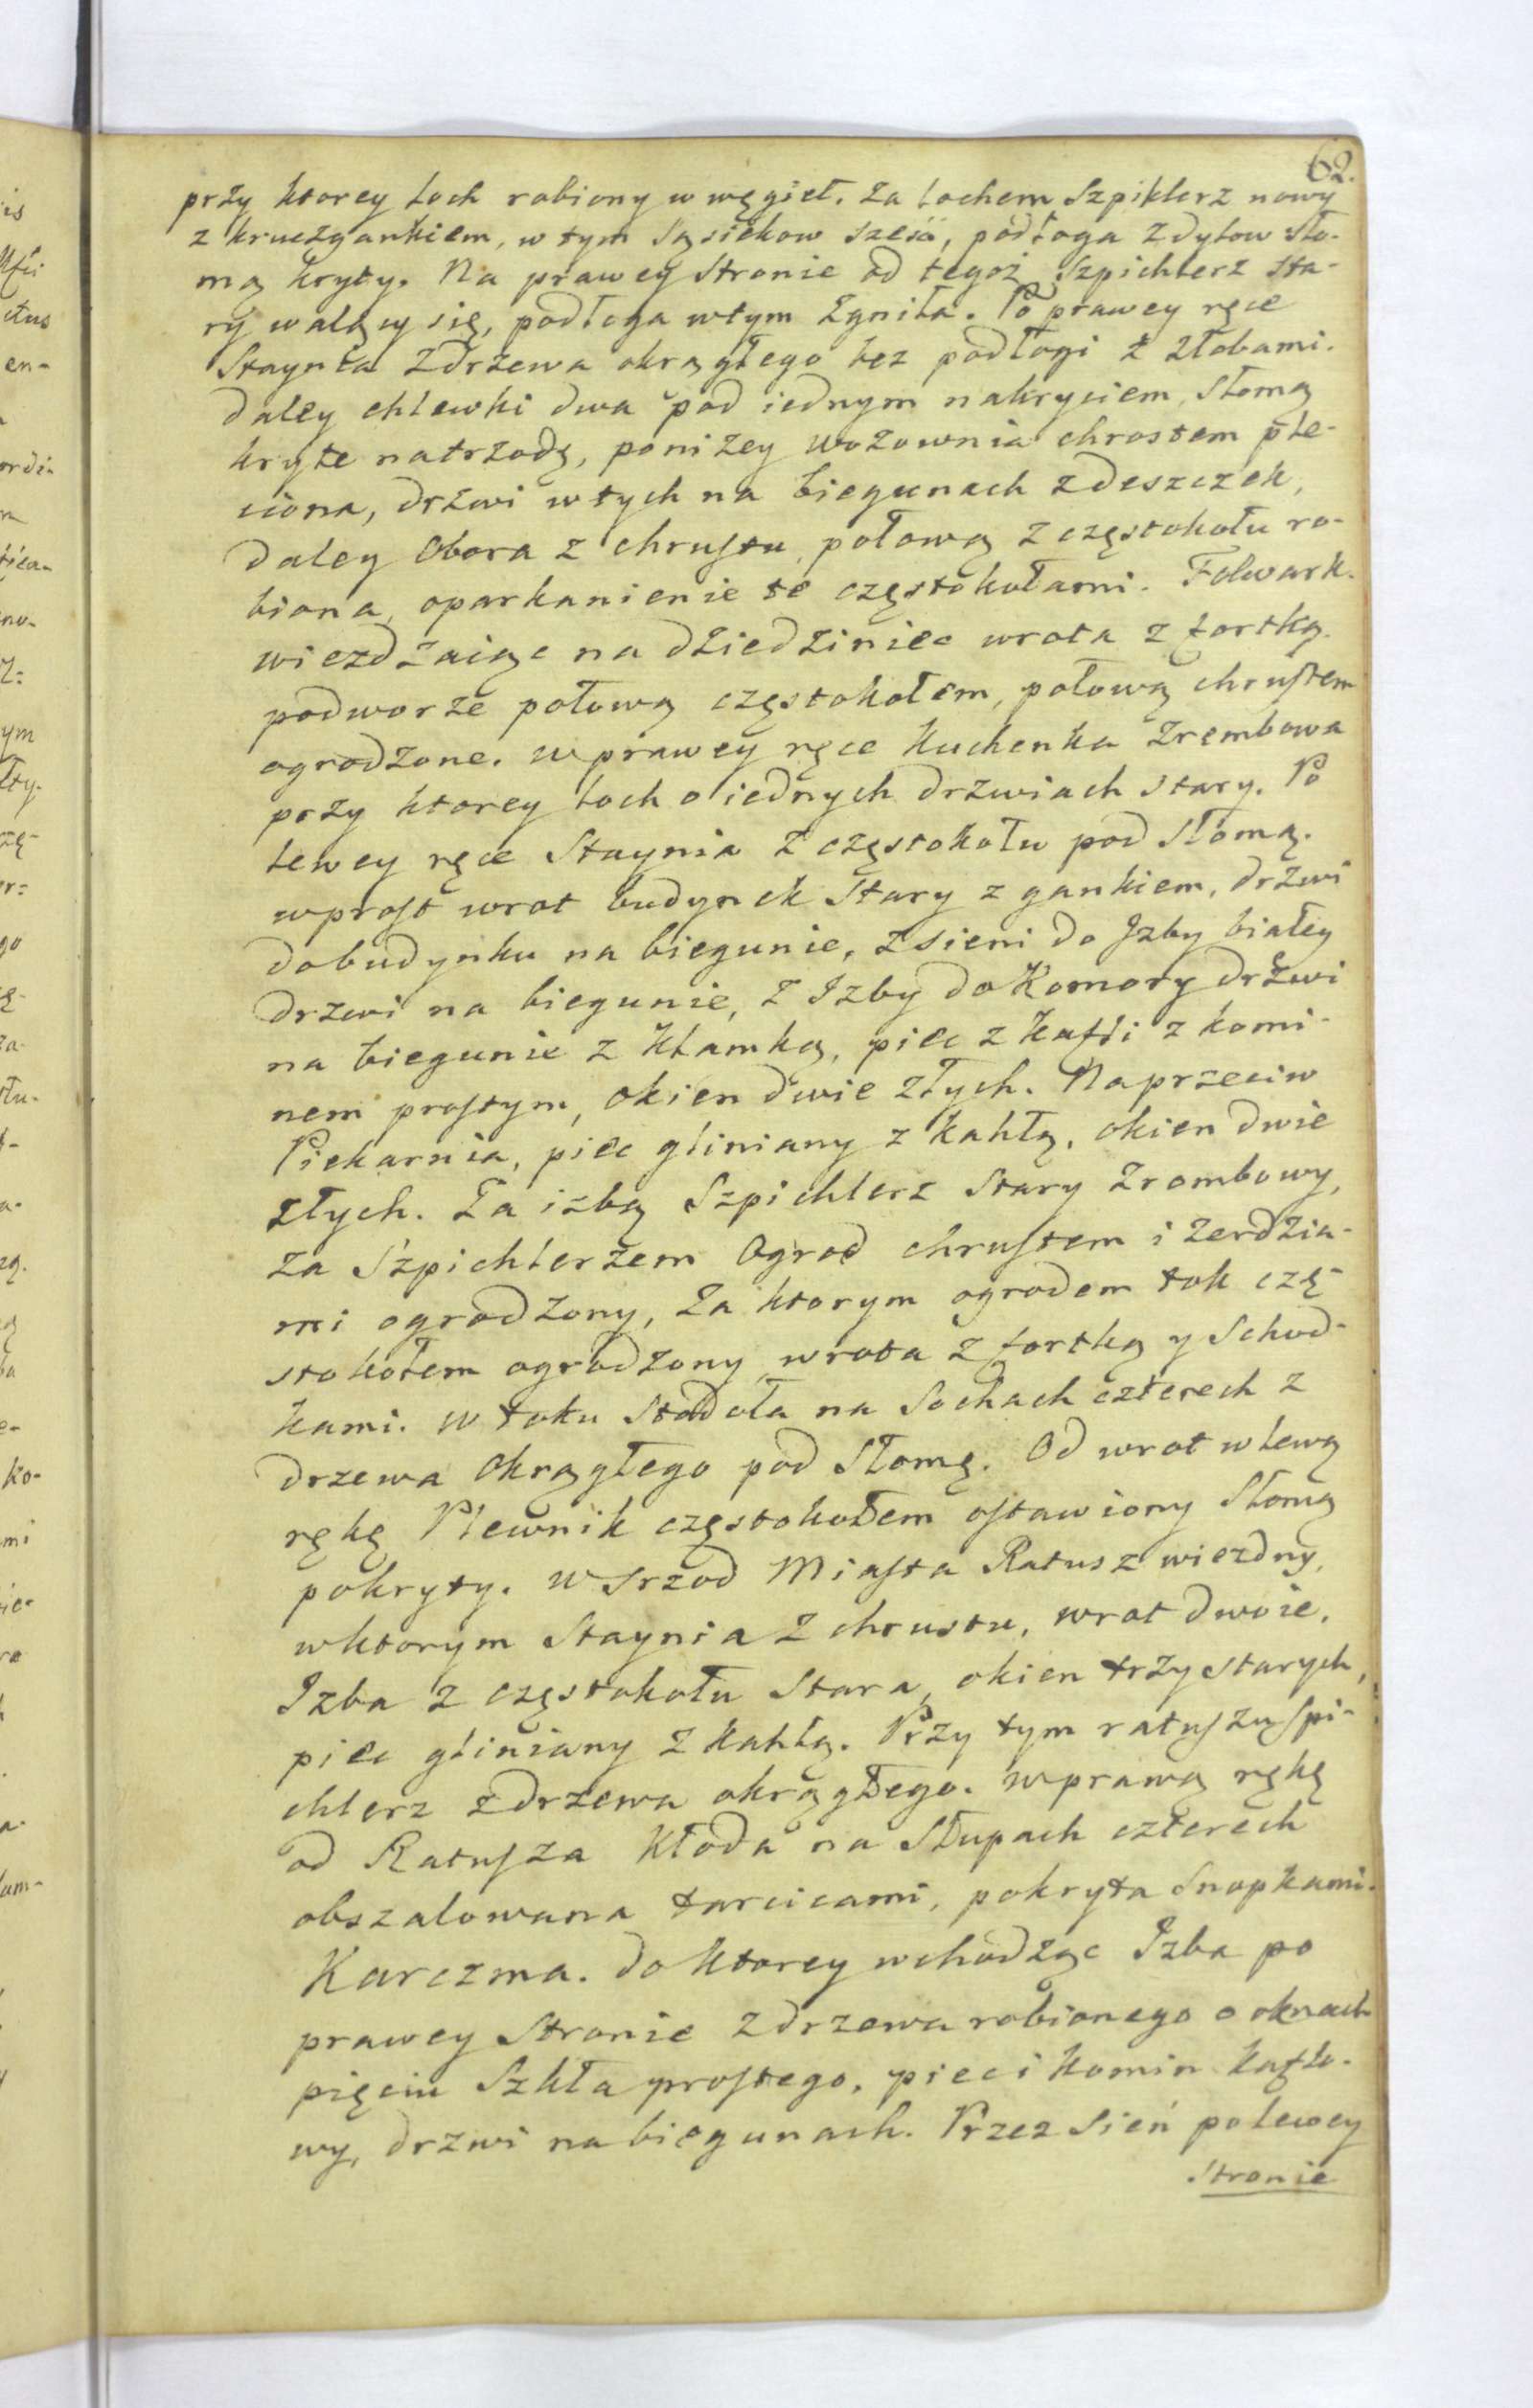 62.
przy ktorey loch robiony w węgieł. Za lochem Szpiklerz nowy
z kruczgankiem, w tym Sąsiekow szesć, podłoga z dylow sło-
mą kryty. Na prawey stronie od tegoż Szpichlerz sta-
ry walący się, podłoga w tym zgniła. Po prawey ręce
Staynia z drzewa okrągłego bez podłogi z złobami.
daley chlewki dwa pod iednym nakryciem, słomą
kryte na trzodę, poniżey wozownia chrostem ple-
ciona, drzwi w tych na biegunach z deszczek,
daley Obora z chrustu, połową z częstokołu ro-
biona, oparkanienie te częstokołami. Folwark.
wiezdzaiąc na dziedziniec wrota z fortką.
podworze połową częstokołem, połową chrustem
ogrodzone. w prawey ręce kuchenka zrembowa
przy ktorey loch o iednych drzwiach stary. Po
lewey ręce Staynia z częstokołu pod słomą.
wprost wrot budynek stary z gankiem, drzwi
do budynku na biegunie, z sieni do Izby białey
drzwi na biegunie, z Izby do Komory drzwi
na biegunie z klamką, piec z kafli z komi-
nem prostym, okien dwie złych. Naprzeciw
Piekarnia, piec gliniany z kahlą, okien dwie
złych. Za izbą Szpichlerz stary zrombowy,
za Szpichlerzem Ogrod chrustem i zerdzia-
mi ogrodzony, za ktorym ogrodem tok czę-
stokołem ogrodzony, wrota z fortką y Schod-
kami. w toku stodoła na Sochach czterech z
drzewa okrągłego pod słomą. Od wrot w lewą
rękę Plewnik częstokołem ostawiony słomą
pokryty. w srzod Miasta Ratusz wiezdny,
w ktorym Staynia z chrustu, wrot dwoie,
Izba z częstokołu stara, okien trzy starych,
piec gliniany z kahlą. Przy tym ratuszu spi-
chlerz z drzewa okrągłego. w prawą rękę
od Ratusza Kłoda na słupach czterech
obszalowana tarcicami, pokryta snopkami.
Karczma. do ktorey wchodząc Izba po
prawey stronie z drzewa robionego o oknach
pięciu szkła prostego, piec i komin kaflo-
wy, drzwi na biegunach. Przez Sień po lewey
stronie